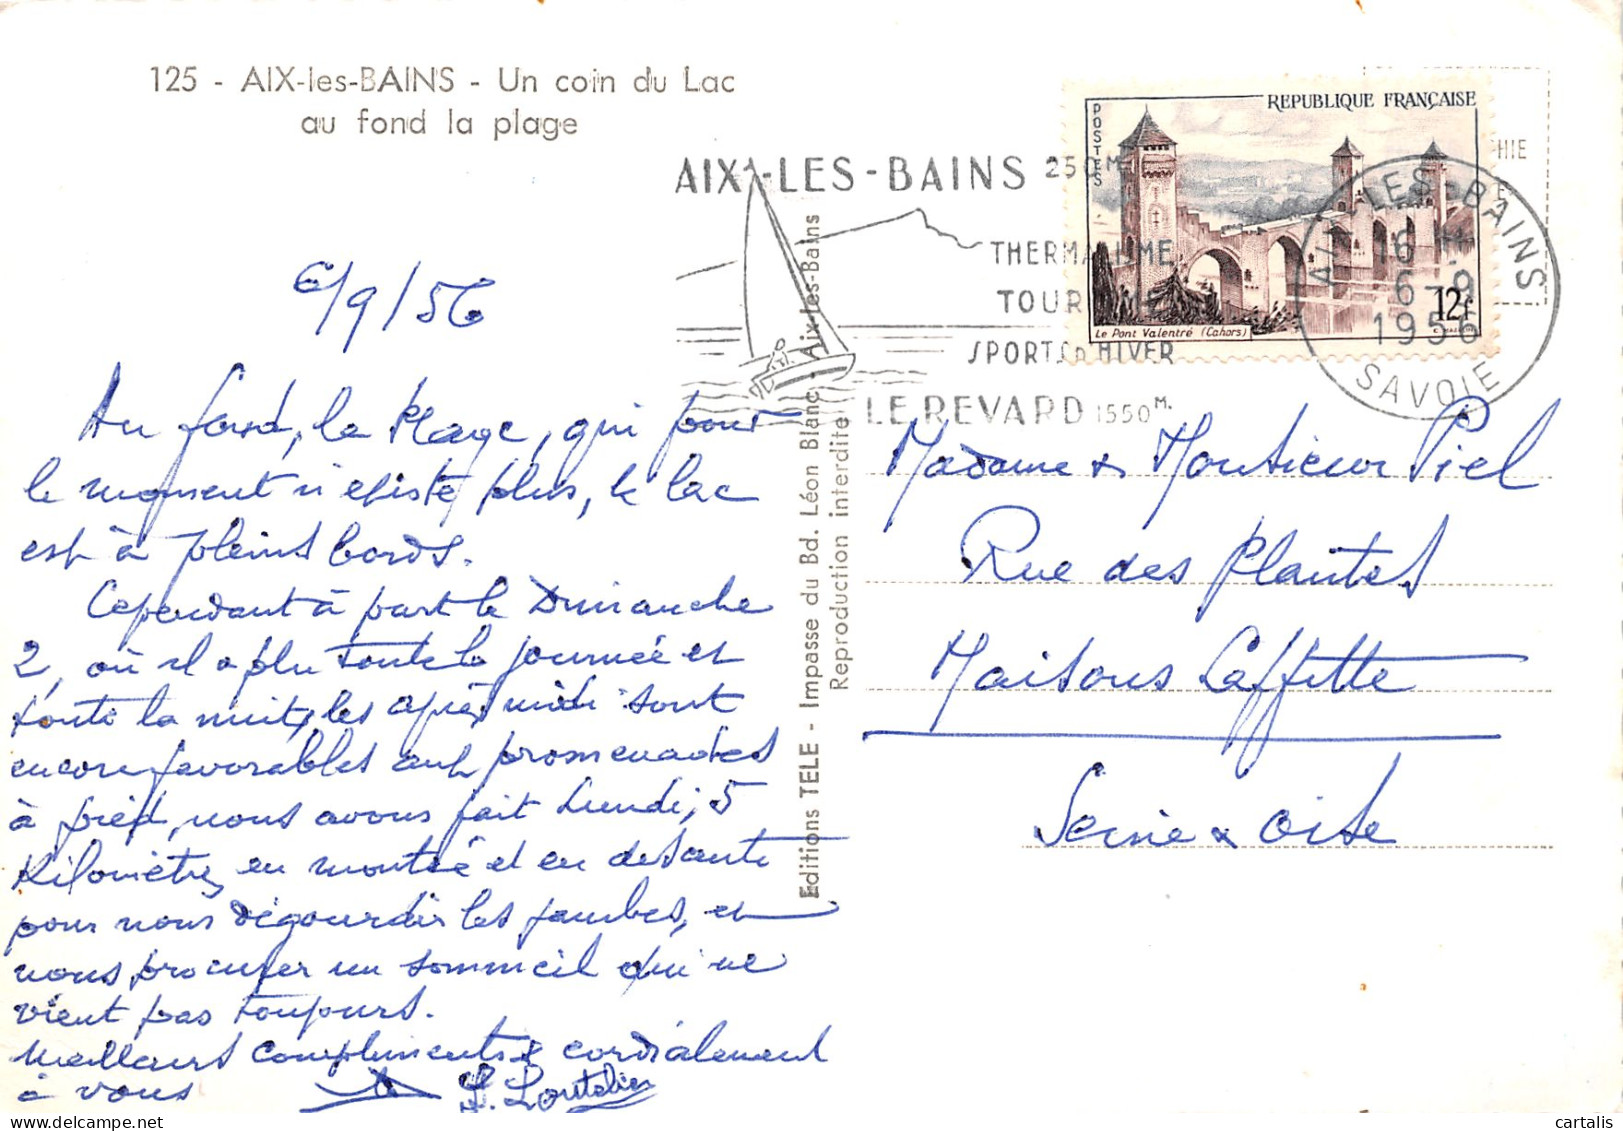 125 - AIX-les-BAINS - Un coin du Lac
au fond la plage
AIX-LES-BAINS 250M
THERMALISME
TOURISME
SPORTS D'HIVER
LE REVARD 1550M.
REPUBLIQUE FRANÇAISE
POSTES
Le Pont Valentré (Cahors)
12f
AIX-LES-BAINS
16 H
6-9
1956
SAVOIE
6/9/56
Au fond, la Plage, qui pour
le moment n'existe plus, le lac
est à pleins bords.
Cependant à part le Dimanche
2, où il a plu toute la journée et
toute la nuit, les après midi sont
encore favorables aux promenades
à pied, nous avons fait Lundi, 5
Kilomètres en montée et en desante
pour nous dégourdir les jambes, et
nous procurer un sommeil qui ne
vient pas toujours.
Meilleurs compliments & cordialement
à vous
Editions TELE - Impasse du Bd. Léon Blanc - Aix-les-Bains
Reproduction interdite
Madame & Monsieur Piel
Rue des Plantes
Maisons Laffitte
Seine & Oise
cartalis
delcampe.net